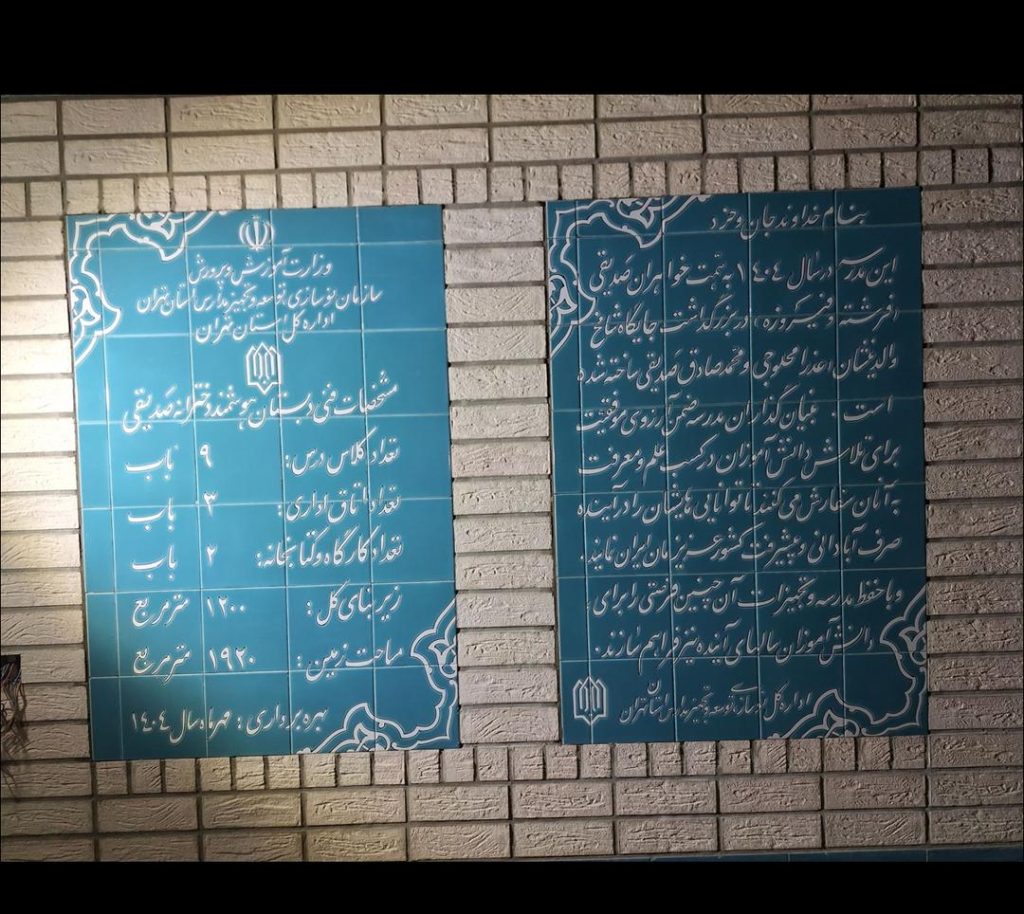 بنام خداوند جان و خرد
این مدرسه در سال ۱۴۰۴ به همت خواهران صدیقی
(فرشته و فیروزه) در بزرگداشت جایگاه شامخ
والدینشان عذرا محلوجی و محمدصادق صدیقی ساخته شده
است. بنیان گذاران مدرسه ضمن آرزوی موفقیت
برای تلاش دانش آموزان در کسب علم و معرفت
به آنان سفارش می کنند تا توانایی هایشان را در آینده
صرف آبادانی و پیشرفت کشور عزیزمان ایران نمایند.
و با حفظ مدرسه و تجهیزات آن چنین فرصتی را برای
دانش آموزان سالهای آینده نیز فراهم سازند.
اداره کل نوسازی توسعه و تجهیز مدارس استان تهران
وزارت آموزش و پرورش
سازمان نوسازی، توسعه و تجهیز مدارس استان تهران
اداره کل استان تهران
مشخصات فنی دبستان هوشمند دخترانه صدیقی
تعداد کلاس درس: ۹ باب
تعداد اتاق اداری: ۳ باب
تعداد کارگاه و کتابخانه: ۲ باب
زیر بنای کل: ۱۲۰۰ متر مربع
مساحت زمین: ۱۹۲۰ متر مربع
بهره برداری: مهر ماه سال ۱۴۰۴